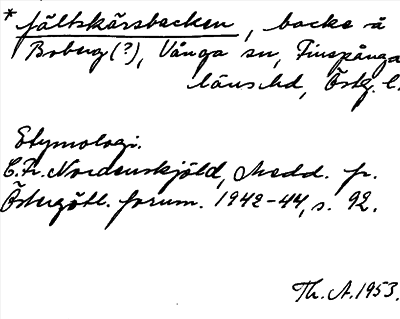 * fältskärsbacken, backe å
Boberg (?), Vånga sn, Finspånga
läns hd, Östg. l.
Etymologi.
C. Fr. Nordenskjöld, Medd. fr.
Östergötl. fornm. 1942-44, s. 92.
Th. A. 1953.